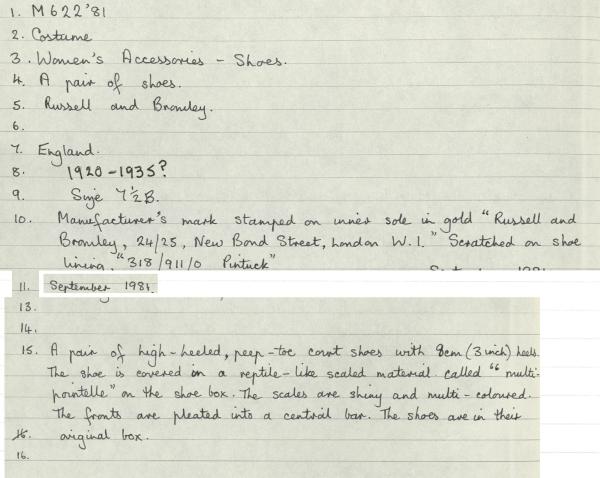 1. M622'81
2. Costume
3. Women's Accessories - Shoes.
4. A pair of shoes.
5. Russell and Bromley.
6.
7. England.
8. 1920-1935?
9. Size 7½B.
10. Manufacturer's mark stamped on inner sole in gold "Russell and
Bromley, 24/25, New Bond Street, London W.1." Scratched on shoe
lining, "318/911/0 Pintuck"
11. September 1981.
13.
14.
15. A pair of high-heeled, peep-toe court shoes with 8cm (3 inch) heels.
The shoe is covered in a reptile-like scaled material called "multi-
pointelle" on the shoe box. The scales are shiny and multi-coloured.
The fronts are pleated into a central bar. The shoes are in their
16. original box.
16.